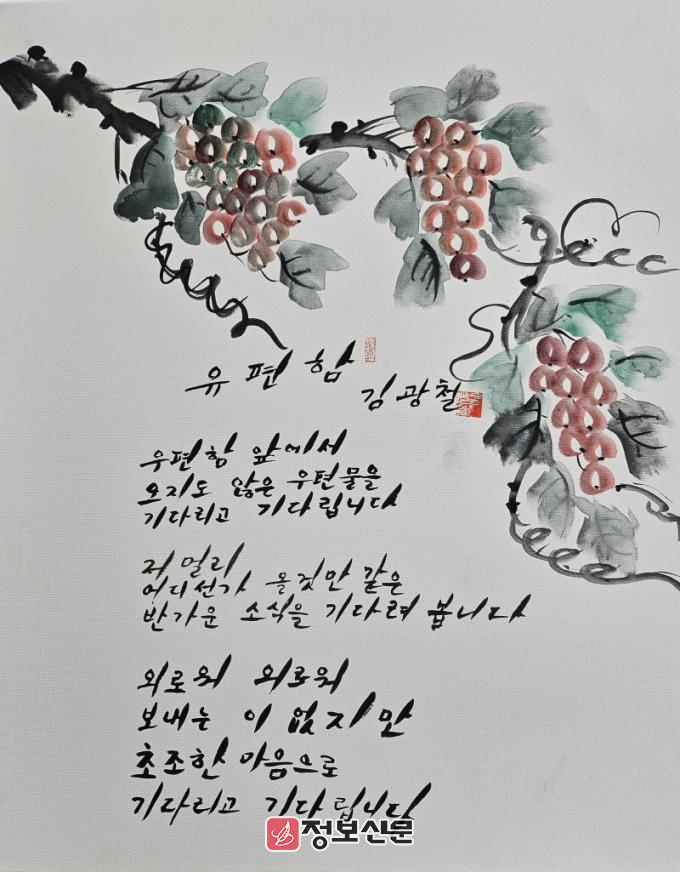 유편함
김광철
우편함 앞에서
오지도 않은 우편물을
기다리고 기다립니다
저 멀리
어디선가 올것만 같은
반가운 소식을 기다려 봅니다
외로워 외로워
보내는 이 없지만
초조한 마음으로
기다리고 기다립니다
정보신문